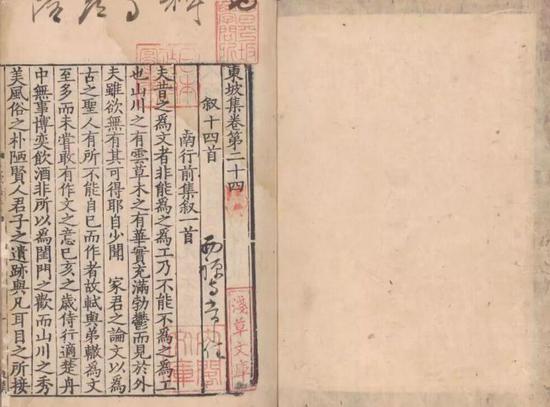 東坡集卷第二十四
叙十四首
南行前集叙一首
夫昔之爲文者非能爲之爲工乃不能不爲之爲工
也山川之有雲草木之有華實充滿勃鬱而見於外
夫雖欲無有其可得耶自少聞　家君之論文以爲
古之聖人有所不能自已而作者故軾與弟轍爲文
至多而未嘗敢有作文之意已亥之歲侍行適楚舟
中無事博弈飲酒非所以爲閨門之歡而山川之秀
美風俗之朴陋賢人君子之遺跡與凡耳目之所接
淺草文庫